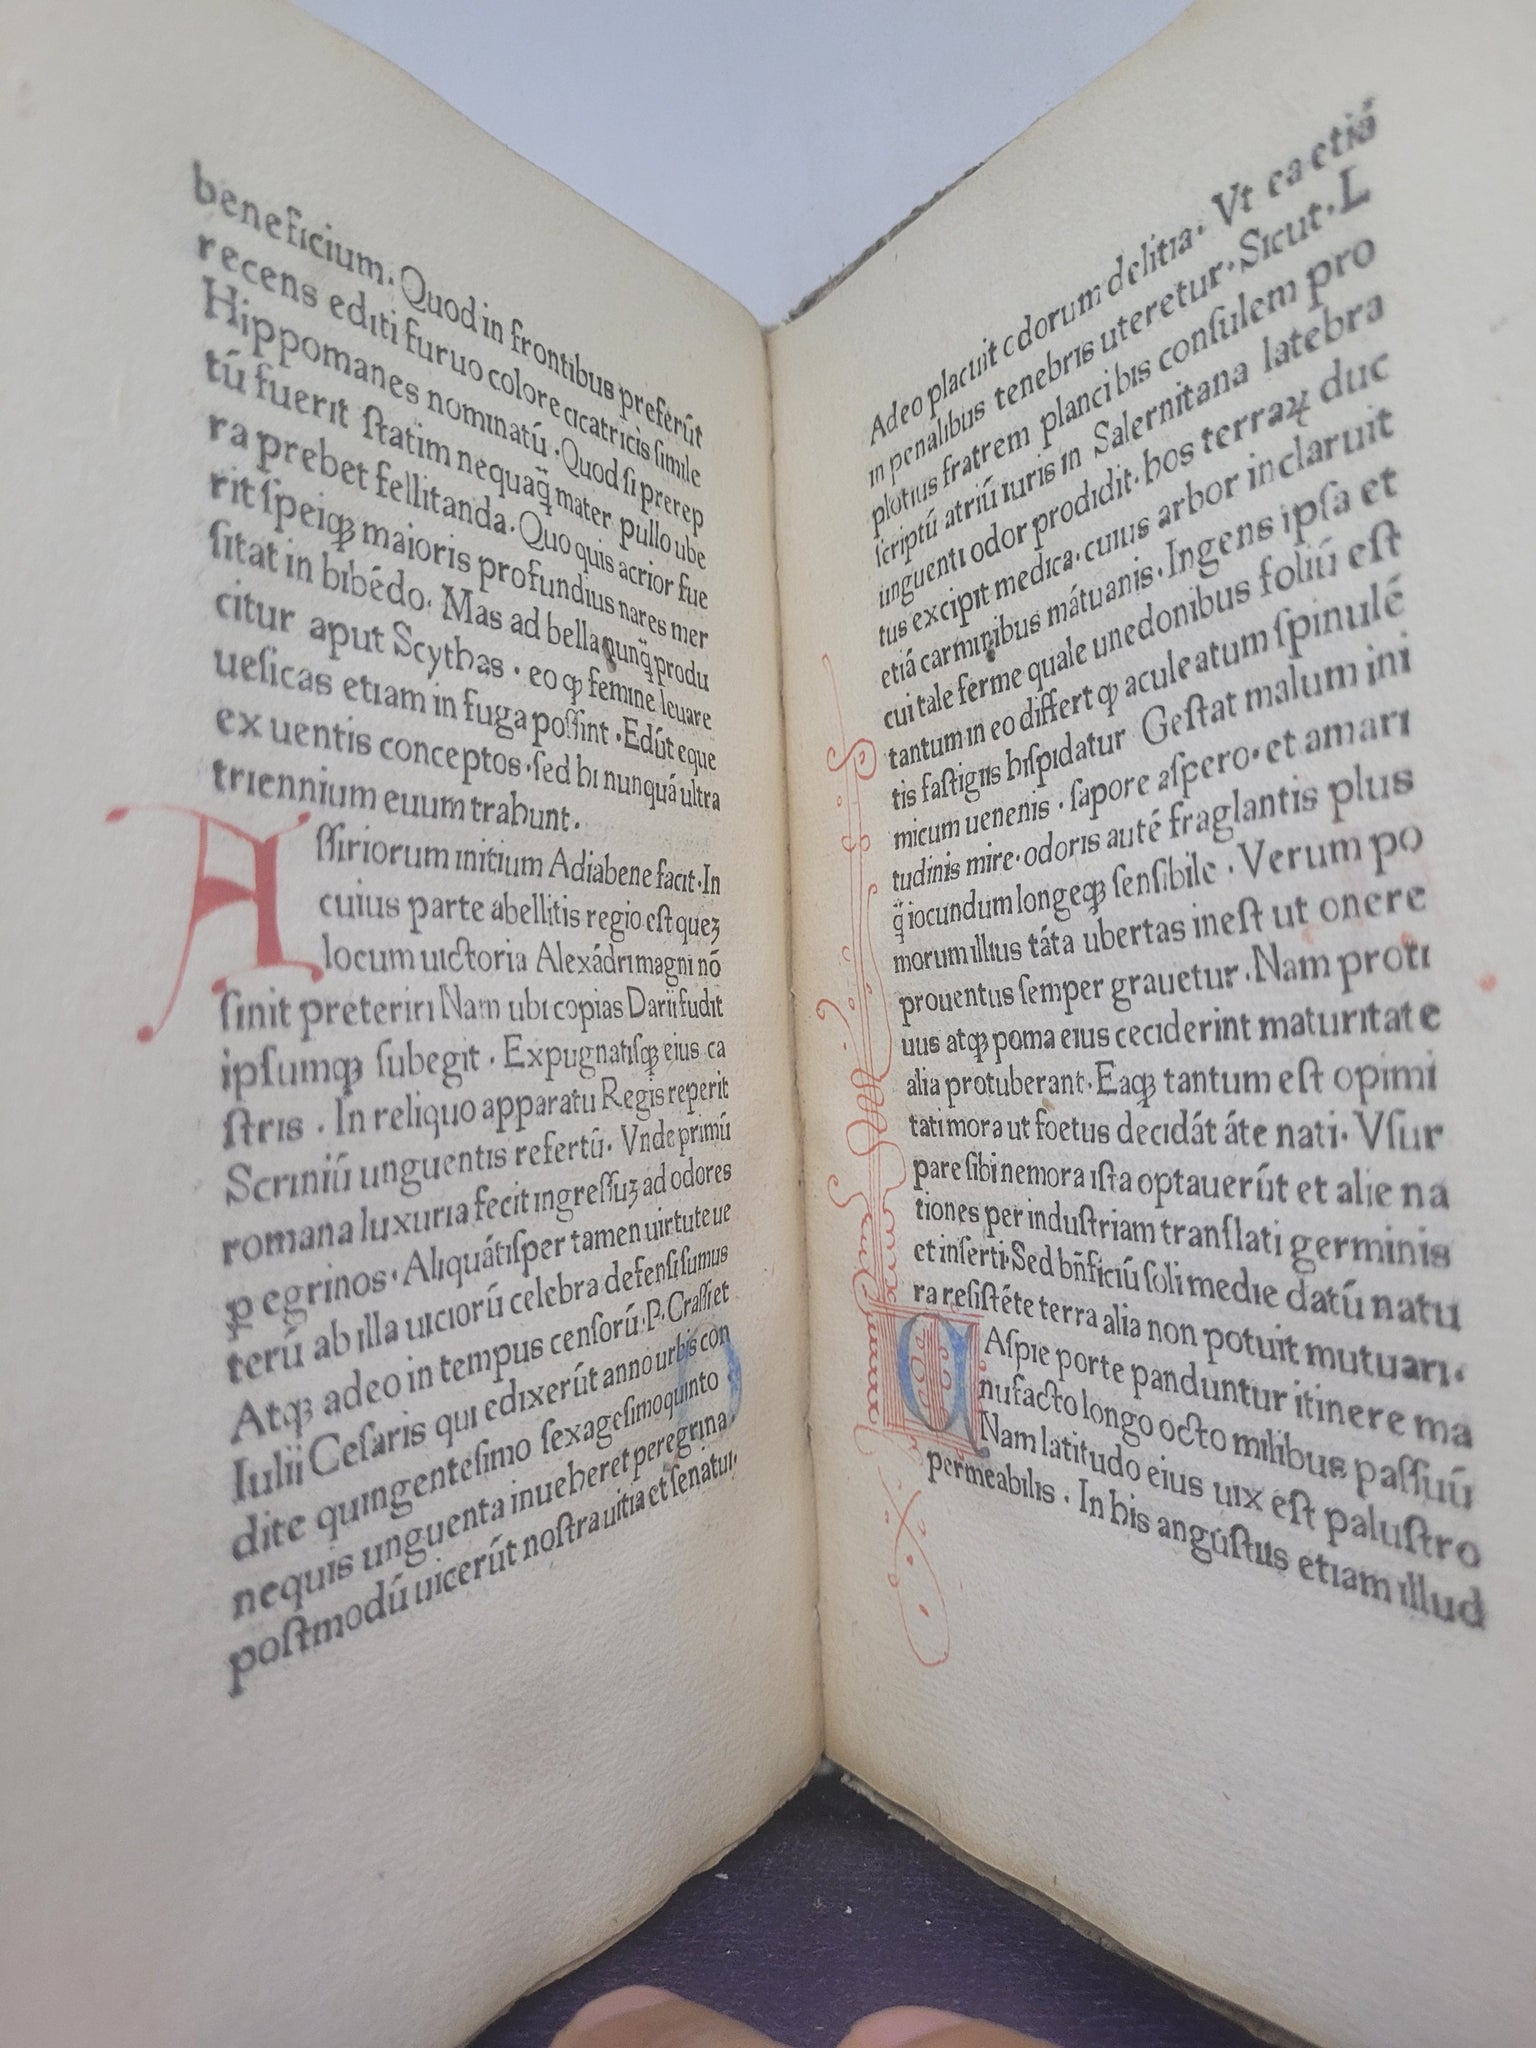 beneficium. Quod in frontibus preferút
recens editi furuo colore cicatricis ſimile
Hippomanes nominatú. Quod ſi prerep
tú fuerit ſtatim nequaq̃ mater pullo ube
ra prebet fellitanda. Quo quis acrior fue
rit ſpeiqꝫ maioris profundius nares mer
ſitat in bibédo. Mas ad bella nunq̃ produ
citur aput Scythas. eo ꝙ femine leuare
ueſicas etiam in fuga poſſint. Edút eque
ex uentis conceptos. ſed hi nunquá ultra
triennium euum trahunt.
Aſſiriorum initium Adiabene facit. In
cuius parte abellitis regio eſt queꝫ
locum uictoria Alexádri magni nó
ſinit preteriri Nam ubi copias Darii fudit
ipſumqꝫ ſubegit. Expugnatiſqꝫ eius ca
ſtris. In reliquo apparatu Regis reperit
Scriniú unguentis refertú. Vnde primú
romana luxuria fecit ingreſſuꝫ ad odores
ꝑegrinos. Aliquátiſper tamen uirtute ue
terú ab illa uiciorú celebra defenſiſumus
Atqꝫ adeo in tempus cenſorú. P. Craſſi et
Iulii Ceſaris qui edixerút anno urbis con
dite quingenteſimo ſexageſimoquinto
nequis unguenta inueheret peregrina.
poſtmodú uicerút noſtra uitia et ſenatui.
Adeo placuit cdorum delitia. Vt ea etiá
in penalibus tenebris uteretur. Sicut. L
plotius fratrem planci bis conſulem pro
ſcriptú atriú iuris in Salernitana latebra
unguenti odor prodidit. hos terraꝝ duc
tus excipit medica. cuius arbor inclaruit
etiá carminibus mátuanis. Ingens ipſa et
cui tale ferme quale unedonibus foliú eſt
tantum in eo differt ꝙ aculeatum ſpinulé
tis faſtigiis hiſpidatur Geſtat malum ini
micum uenenis. ſapore aſpero. et amari
tudinis mire. odoris auté fraglantis plus
q̃ iocundum longeqꝫ ſenſibile. Verum po
morum illius táta ubertas ineſt ut onere
prouentus ſemper grauetur. Nam proti
uus atqꝫ poma eius ceciderint maturitate
alia protuberant. Eaqꝫ tantum eſt opimi
tati mora ut foetus decidát áte nati. Vſur
pare ſibi nemora iſta optauerút et aliena
tiones per induſtriam tranſlati germinis
et inſerti. Sed bñficiú ſoli medie datú natu
ra reſiſtéte terra alia non potuit mutuari.
CAſpie porte panduntur itinere ma
nufacto longo octo milibus paſſuú
Nam latitudo eius uix eſt palustro
permeabilis. In his anguſtiis etiam illud